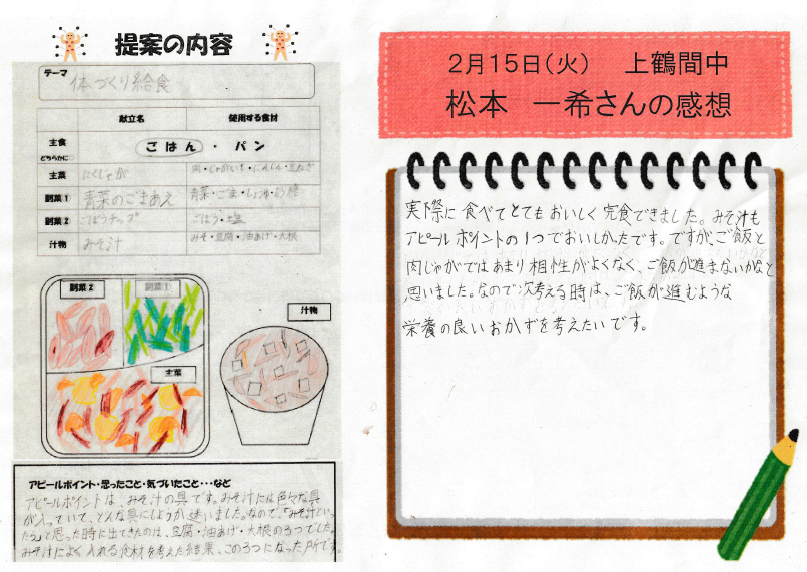 提案の内容
テーマ
体づくり給食
献立名 使用する食材
主食 どちらかに○ ごはん ・ パン
主菜 にくじゃが 肉・じゃがいも・にんじん・玉ねぎ
副菜1 青菜のごまあえ 青菜・ごま・しょうゆ・砂糖
副菜2 ごぼうチップ ごぼう・塩
汁物 みそ汁 みそ・豆腐・油あげ・大根
副菜2 副菜1
汁物
主菜
アピールポイント・思ったこと・気づいたこと・・・など
アピールポイントは、みそ汁の具です。みそ汁には色々な具
が入っていて、どんな具にしようか迷いました。なので、「みそ汁といっ
たら」と思った時に出てきたのは、豆腐・油あげ・大根の3つでした。
みそ汁によく入れる食材を考えた結果、この3つになった所です。
2月15日(火) 上鶴間中
松本 一希さんの感想
実際に食べてとてもおいしく完食できました。みそ汁も
アピールポイントの1つでおいしかったです。ですが、ご飯と
肉じゃがではあまり相性がよくなく、ご飯が進まないかなと
思いました。なので次考える時は、ご飯が進むような
栄養の良いおかずを考えたいです。